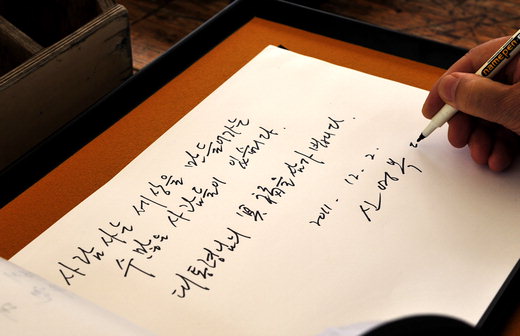 사람사는 세상을 만들어가는
수많은 사람들이 있습니다.
대통령님의 冥福을 삼가 빕니다.
2011. 12. 2.
신영복
namepen